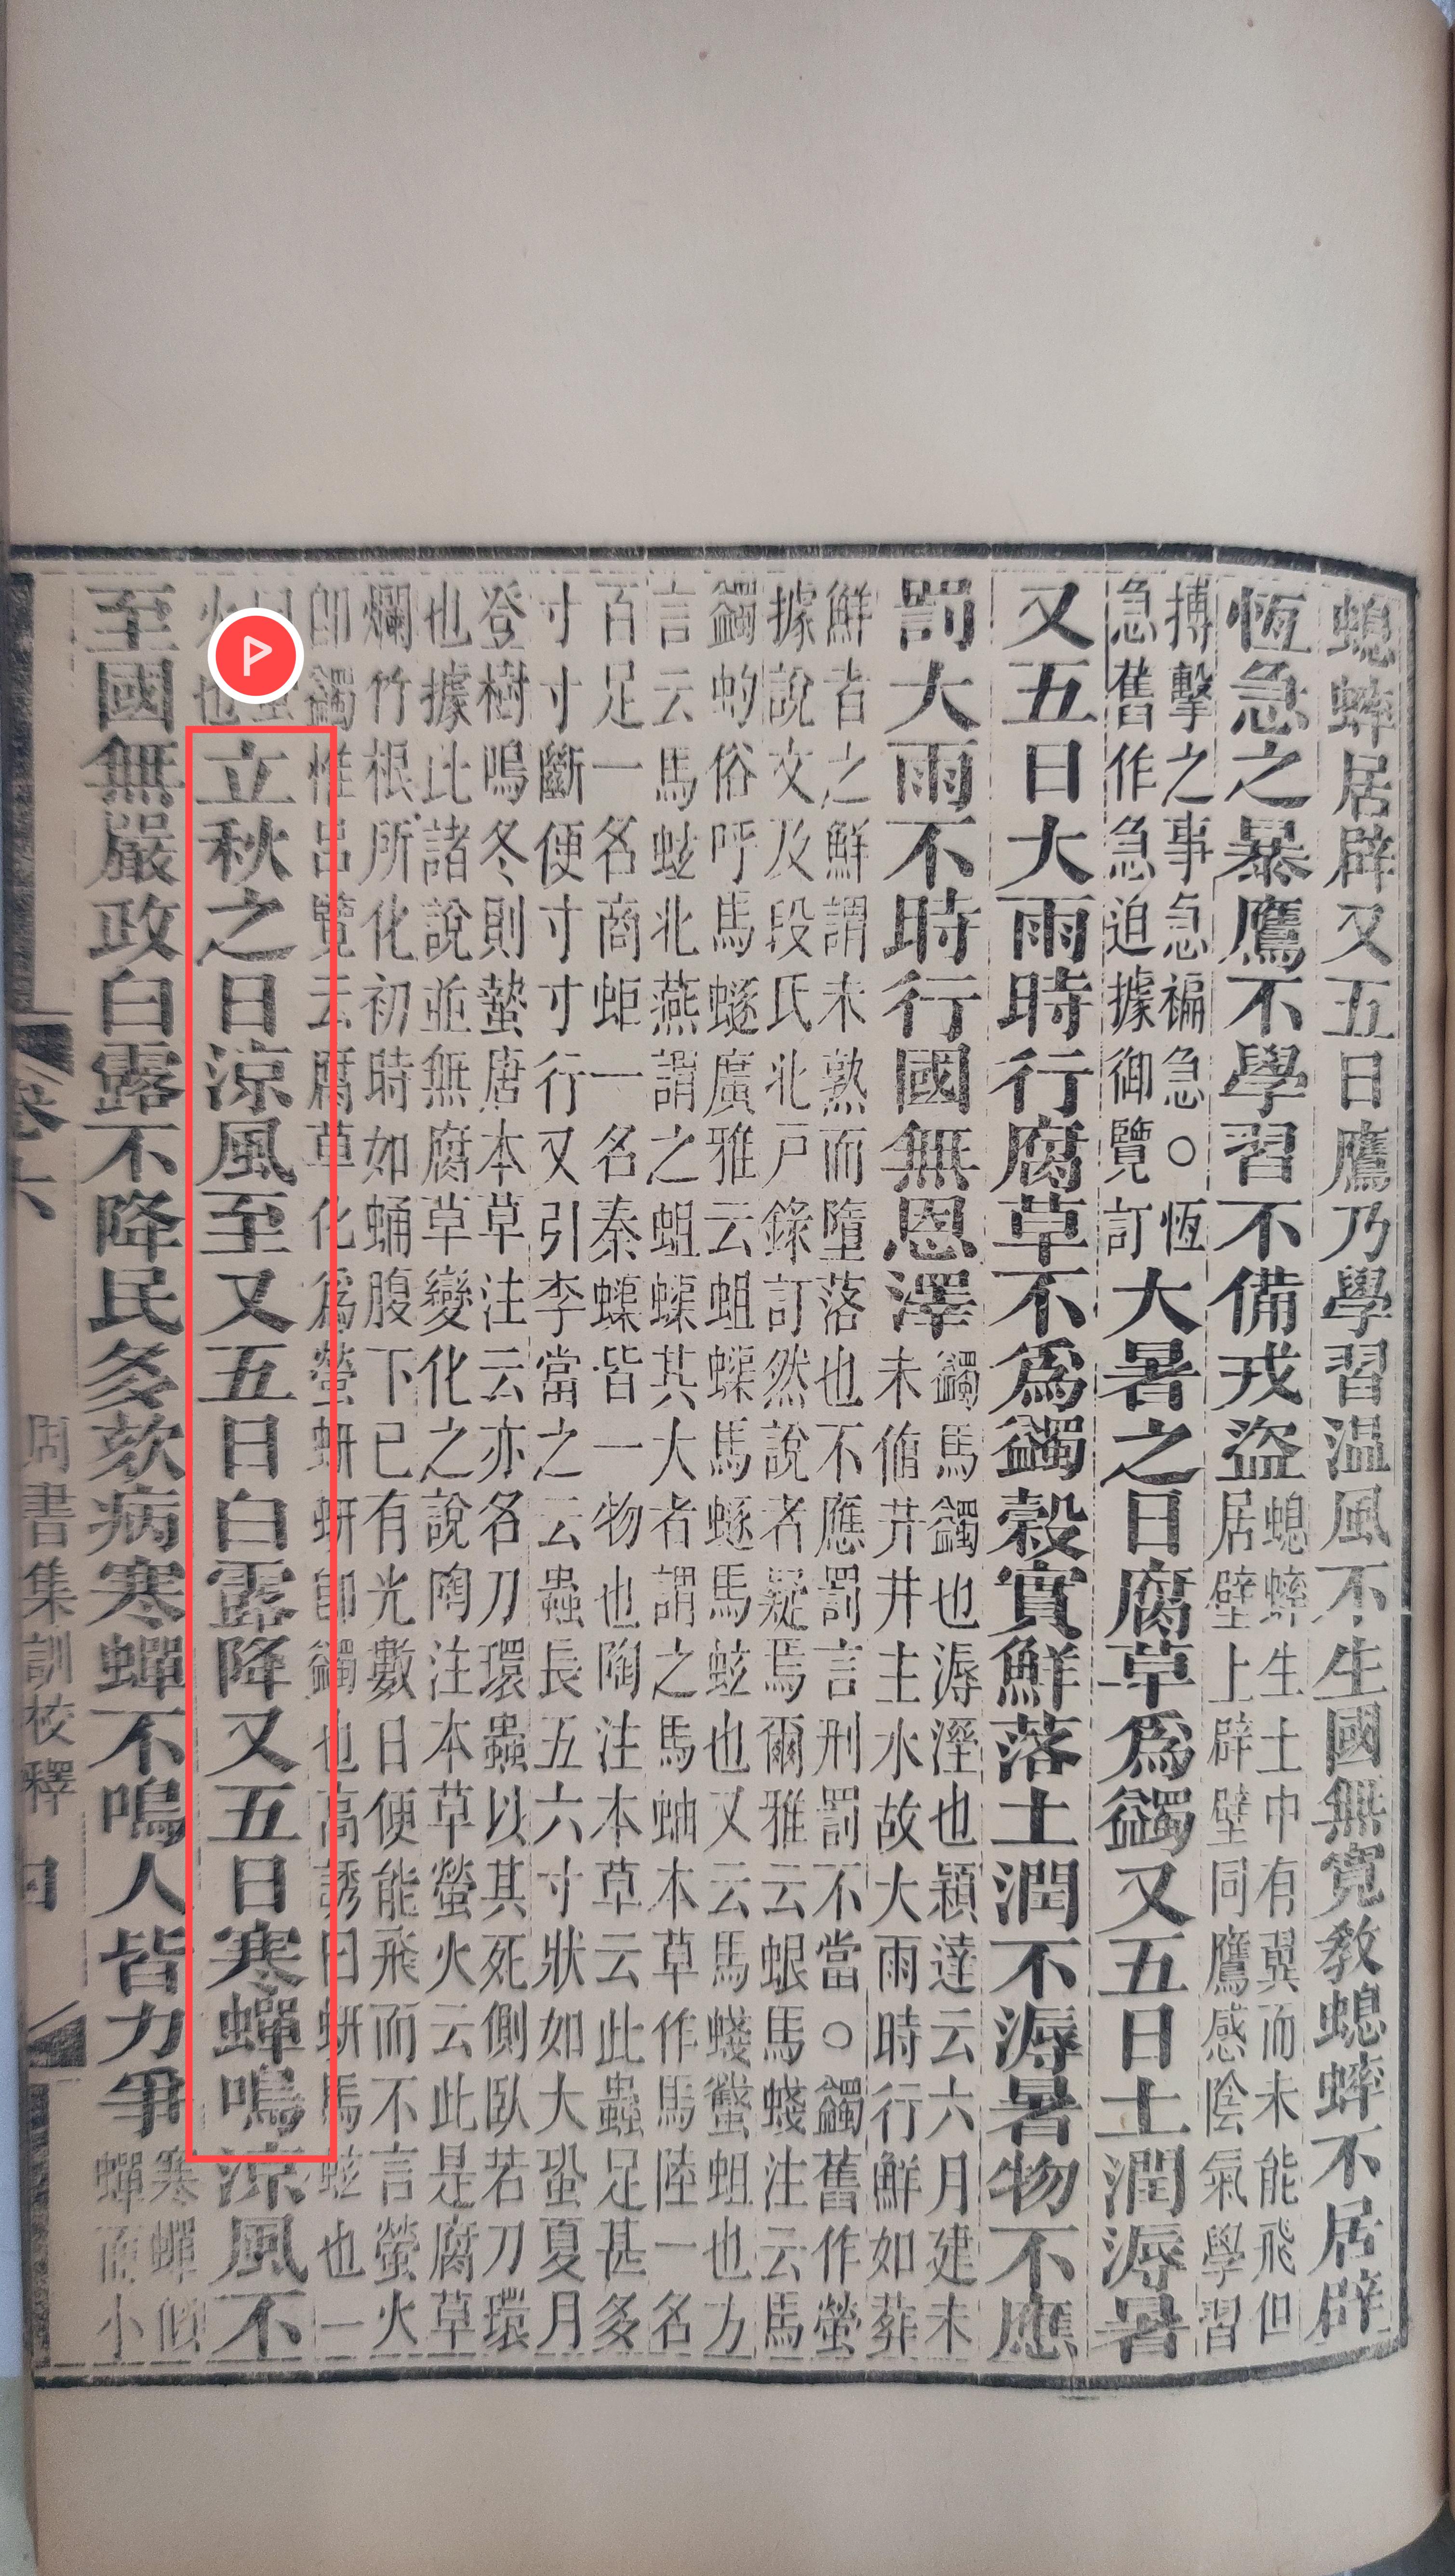 蟋蟀居辟又五日鷹乃學習温風不生國無寬教蟋蟀不居辟
恆急之暴鷹不學習不備戎盜
蟋蟀生土中有翼而未能飛但
居壁上辟壁同鷹感陰氣學習
搏擊之事急褊急○恆
急舊作急迫據御覽訂
大暑之日腐草爲蠲又五日土潤溽暑
又五日大雨時行腐草不爲蠲穀實鮮落土潤不溽暑物不應
罰大雨不時行國無恩澤
蠲馬蠲也溽溼也穎達云六月建未
未値井井主水故大雨時行鮮如葬
鮮者之鮮謂未熟而墮落也不應罰言刑罰不當○蠲舊作螢
據說文及段氏北戸錄訂然說者疑焉爾雅云蛝馬䗃注云馬
蠲蚐俗呼馬䗘廣雅云蛆蟝馬䗘馬蚿也又云馬䗃蠽蛆也方
言云馬蚿北燕謂之蛆蟝其大者謂之馬蚰本草作馬陸一名
百足一名商蚷一名秦蟝皆一物也陶注本草云此蟲足甚多
寸寸斷便寸寸行又引李當之云蟲長五六寸狀如大蛩夏月
登樹鳴冬則蟄唐本草注云亦名刀環蟲以其死側臥若刀環
也據此諸說並無腐草變化之說陶注本草螢火云此是腐草
爛竹根所化初時如蛹腹下已有光數日便能飛而不言螢火
卽蠲惟呂覽云腐草化爲螢蚈蚈卽蠲也高誘曰蚈馬蚿也一
曰螢
火也
立秋之日涼風至又五日白露降又五日寒蟬鳴涼風不
至國無嚴政白露不降民多欬病寒蟬不鳴人皆力爭
寒蟬蟬似
蟬而小
卷六
周書集訓校釋